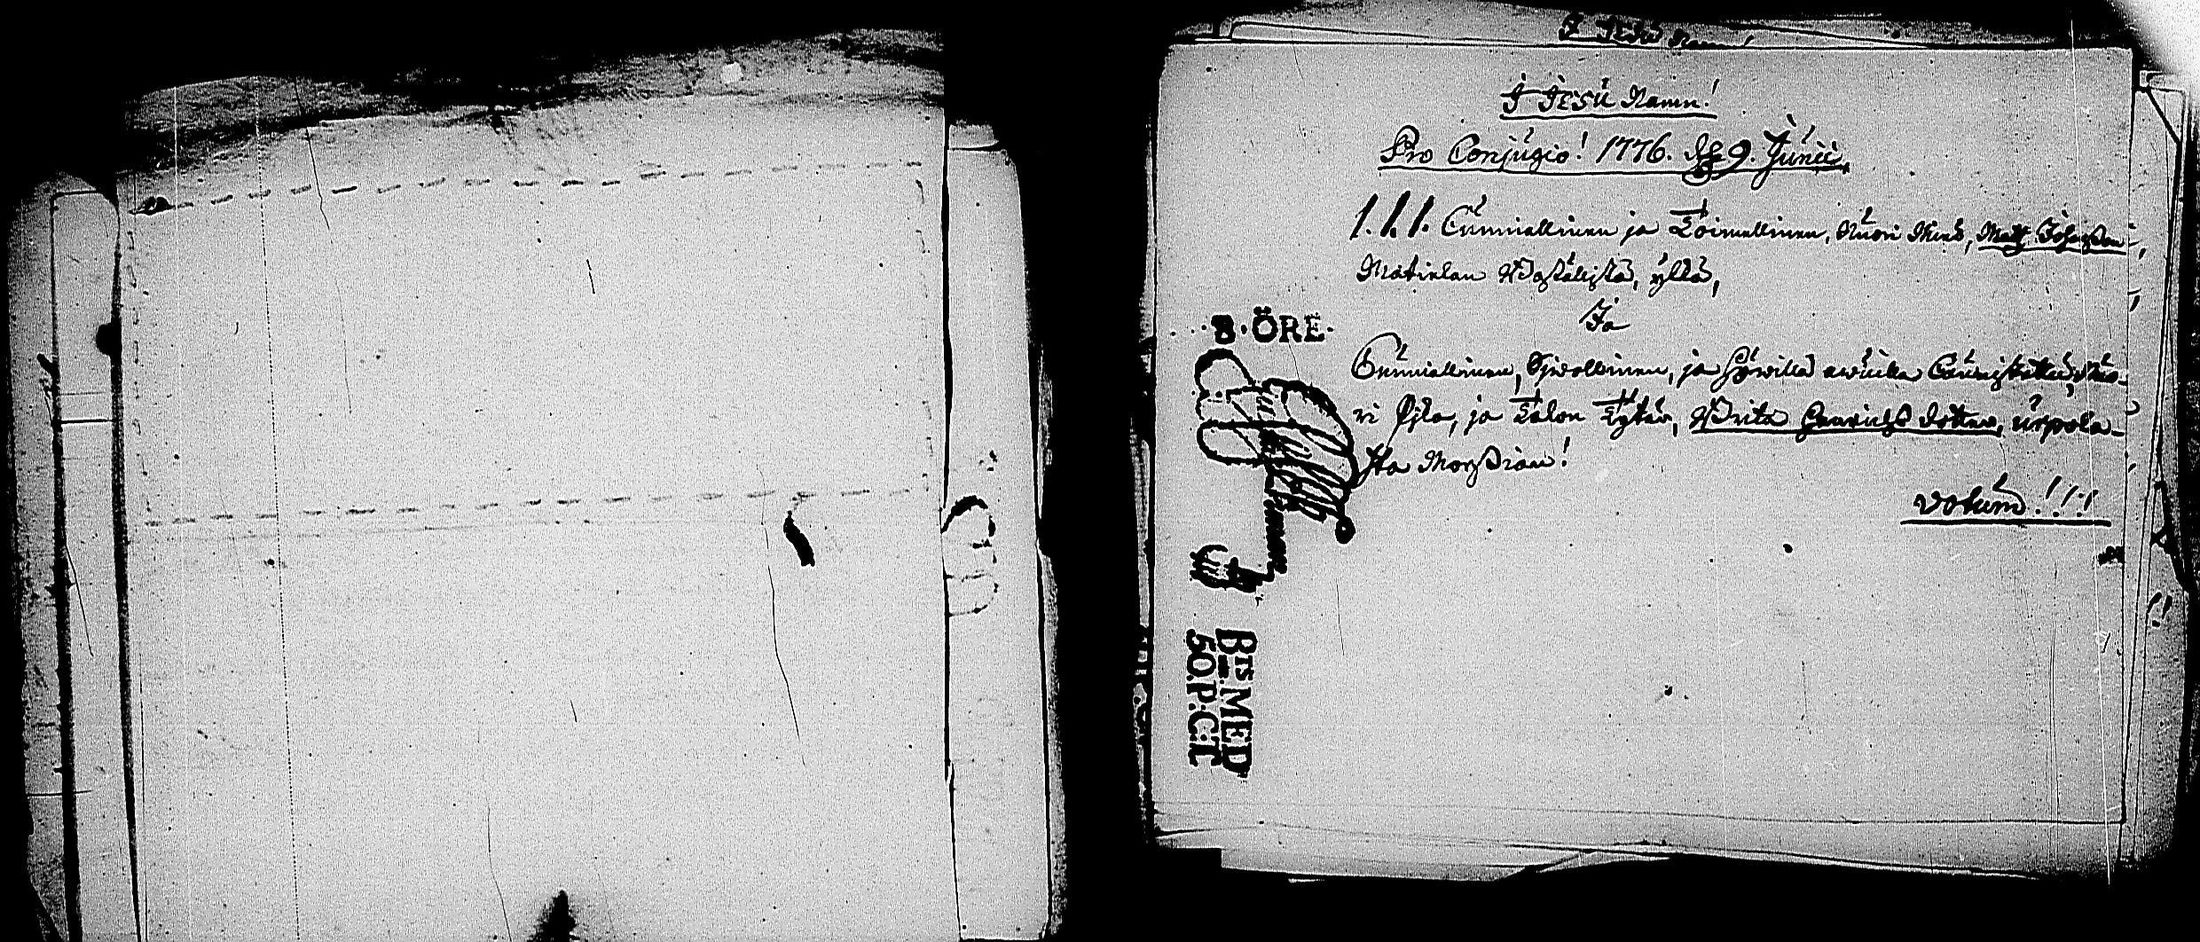 I JESU Namn!
I JESU Namn!
Pro Conjugio! 1776. d. 9. Junii,
1.1.1. Cunniallinen ja Toimellinen, Nuori Mies, Matts
Matinlan ylkä,
8·ÖRE·
Ja
Cunniallinen, Siwollinen, ja Hywillä awuilla Caunistettu, Nuo-
ri Pijka, ja Talon Tytär, Brita Henrichs dotter, urpola-
sta Morsian!
votum!!!
BTS MED
50.P:CT